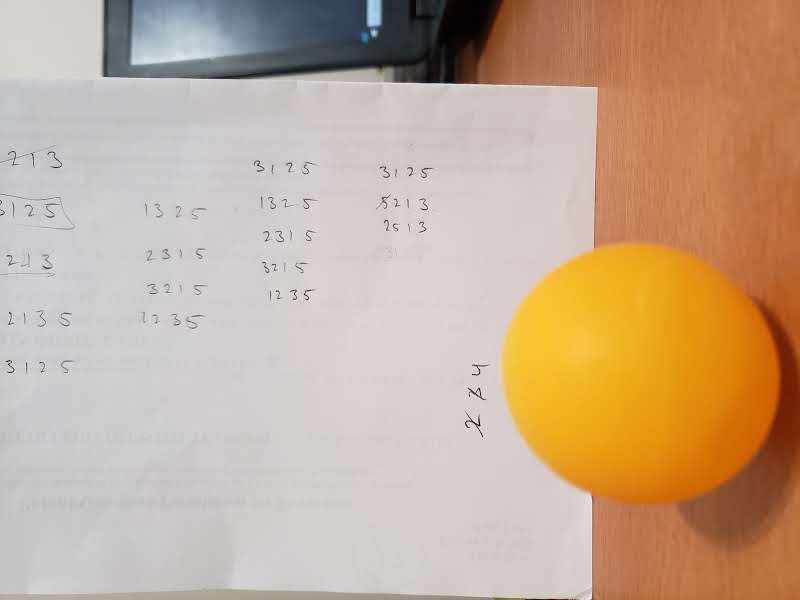 213
3125
213
2135
3125
1325
2315
3215
1235
3125
1325
2315
3215
1235
3125
5213
2513
4